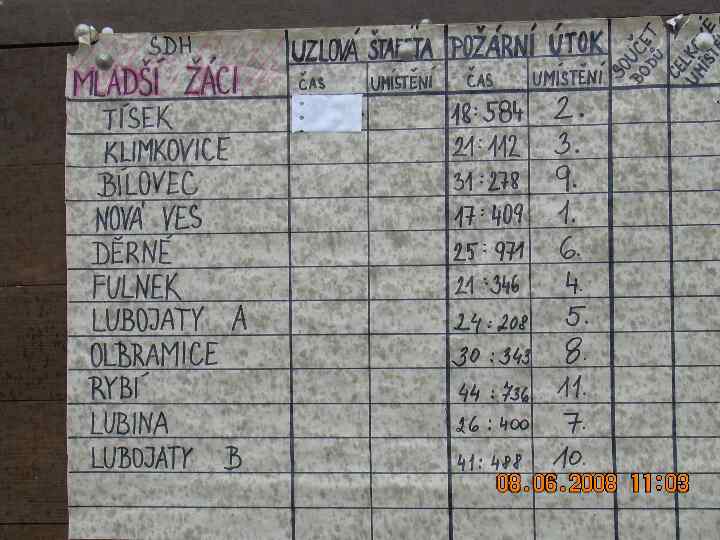 SDH UZLOVÁ ŠTAFETA POŽÁRNÍ ÚTOK SOUČET BODŮ
MLADŠÍ ŽÁCI ČAS UMÍSTĚNÍ ČAS UMÍSTĚNÍ
TÍSEK 18:584 2.
KLIMKOVICE 21:112 3.
BÍLOVEC 31:278 9.
NOVÁ VES 17:409 1.
DĚRNÉ 25:971 6.
FULNEK 21:346 4.
LUBOJATY A 24:208 5.
OLBRAMICE 30:343 8.
RYBÍ 44:736 11.
LUBINA 26:400 7.
LUBOJATY B 41:488 10.
08.06.2008 11:03